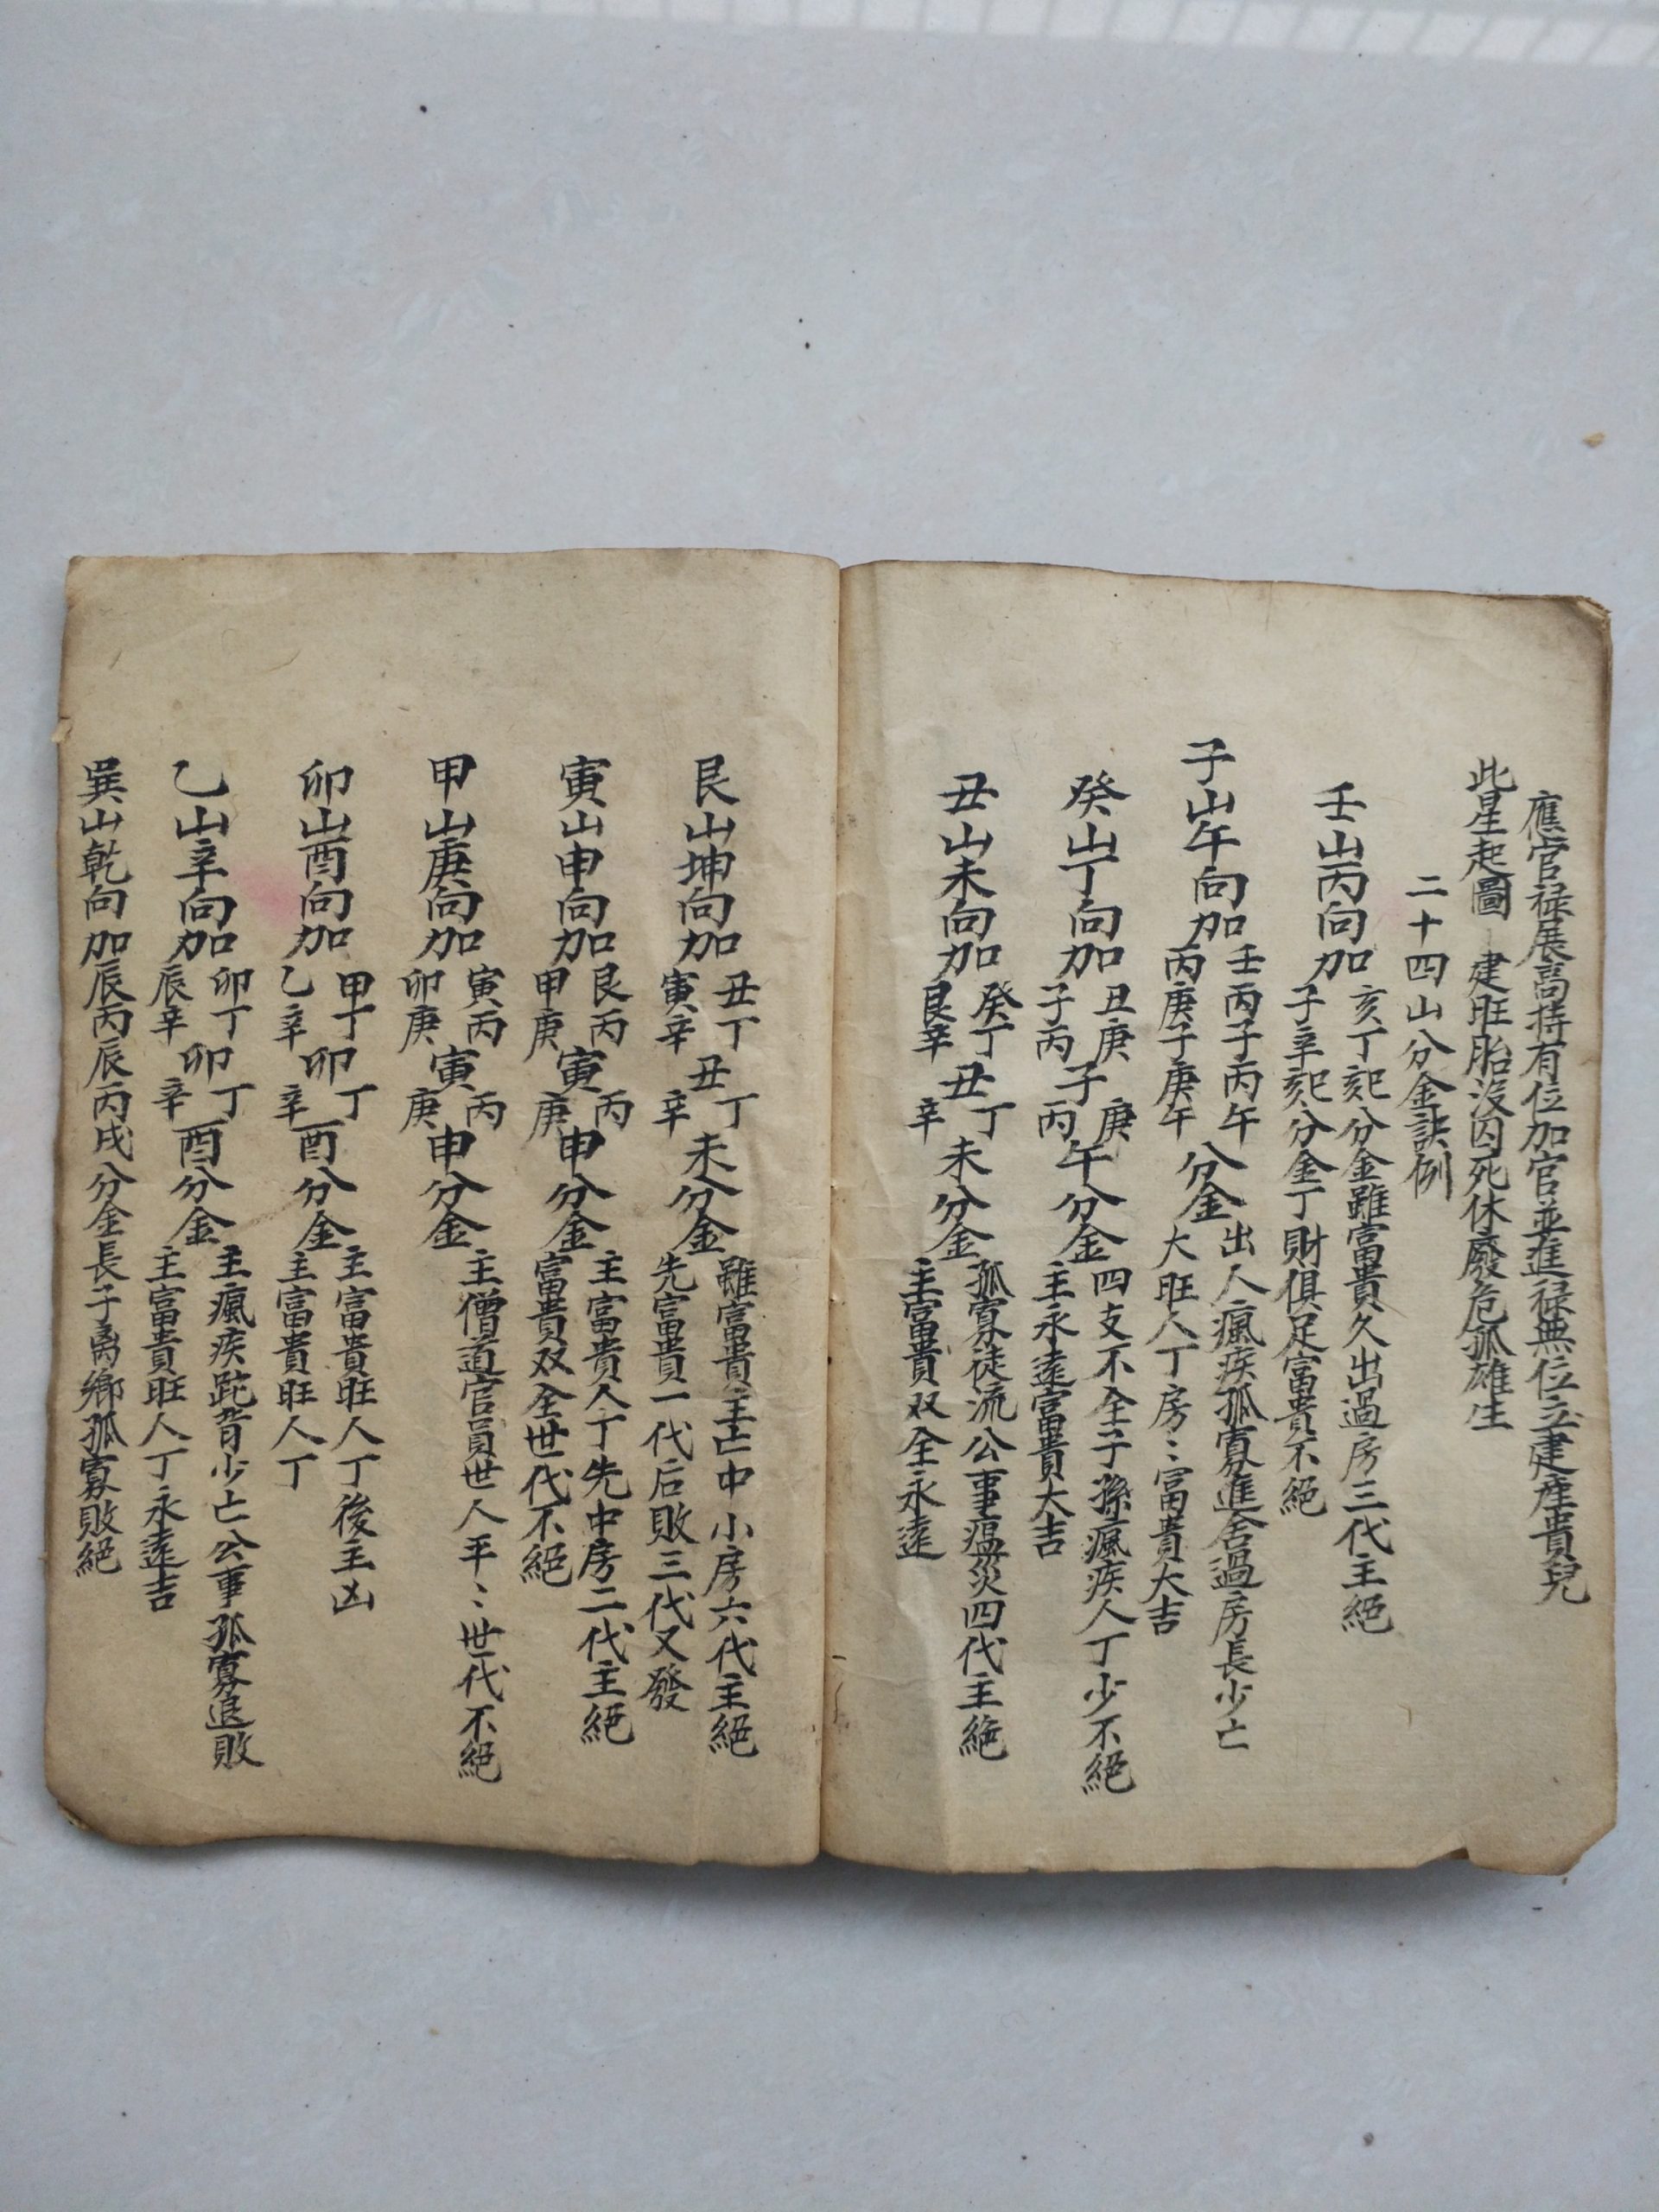 應官禄展高持有位加官並進禄無位立建產貴兒
此星起圖 建旺胎沒囚死休廢危孤雄生
二十四山分金訣例
壬山丙向加
亥丁
分金雖富貴久出過房三代主絕
子辛
分金丁財俱足富貴不絕
子山午向加
壬丙子丙午
丙庚子庚午
分金
出人瘋疾孤寡進舍過房長少亡
大旺人丁房〻富貴大吉
癸山丁向加
丑庚
子丙
子
庚
丙
午分金
四支不全子孫瘋疾人丁少不絕
主永遠富貴大吉
丑山未向加
癸丁
艮辛
丑
丁
辛
未分金
孤寡徒流公事瘟災四代主絕
主富貴双全永遠
艮山坤向加
丑丁
寅辛
丑
丁
辛
未分金
雖富貴主亡中小房六代主絕
先富貴一代后敗三代又發
寅山申向加
艮丙
甲庚
寅
丙
庚
申分金
主富貴人丁先中房二代主絕
富貴双全世代不絕
甲山庚向加
寅丙
卯庚
寅
丙
庚
申分金
主僧道官員世人平〻世代不絕
卯山酉向加
甲丁
乙辛
卯
丁
辛
酉分金
主富貴旺人丁後主凶
主富貴旺人丁
乙山辛向加
卯丁
辰辛
卯
丁
辛
酉分金
主瘋疾跎背少亡公事孤寡退敗
主富貴旺人丁永遠吉
巽山乾向加辰丙辰丙戌分金長子离鄉孤寡敗絕